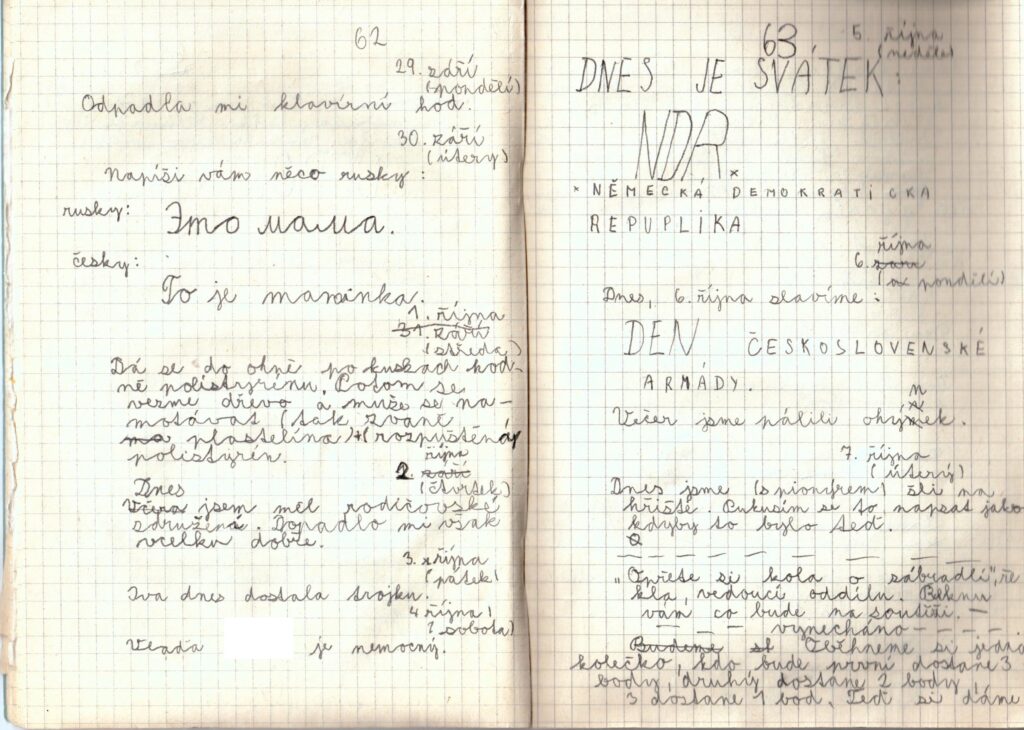 62
29. září
(pondělí)
Odpadla mi klavírní hod.
30. září
(útery)
Napíši vám něco rusky :
rusky: Это мама.
česky:
To je maminka.
1. října
31. září
(středa)
Dá se do ohně po kuskach hod-
ně polistyrénu. Potom se
vezme dřevo a muže se na-
motávat (tak zvaně
na plastelína) (rozpuštěný
polistyrén.
října
2. září
(čtvrtek)
Dnes
Včera jsem měl rodičovské
združení. Dopadlo mi však
vcelku dobře.
3. října
(pátek)
Iva dnes dostala trojku.
4 října
(sobota)
Vlaďa je nemocný.
63
5. října
(neděle)
DNES JE SVÁTEK:
NDR.*
* NĚMECKÁ DEMOKRATICKA
REPUPLIKA
října
6. září
(pondělí)
Dnes, 6. října slavíme :
DEN ČESKOSLOVENSKÉ
ARMÁDY.
Večer jsme pálili ohýnek.
7. října
(úterý)
Dnes jsme (s pionýrem) šli na
hřiště. Pukusím se to, napsat jako
kdyby to bylo teď.
"Opřete si kola o zábradlí", ře
kla, vedoucí oddílu. Řeknu
vám co bude na soutěži. —
— — — vynecháno — — — —
Budeme si Oběhneme si jedno
kolečko, kdo bude první dostane 3
body, druhý dostane 2 body,
3 dostane 1 bod. Teď si dáme